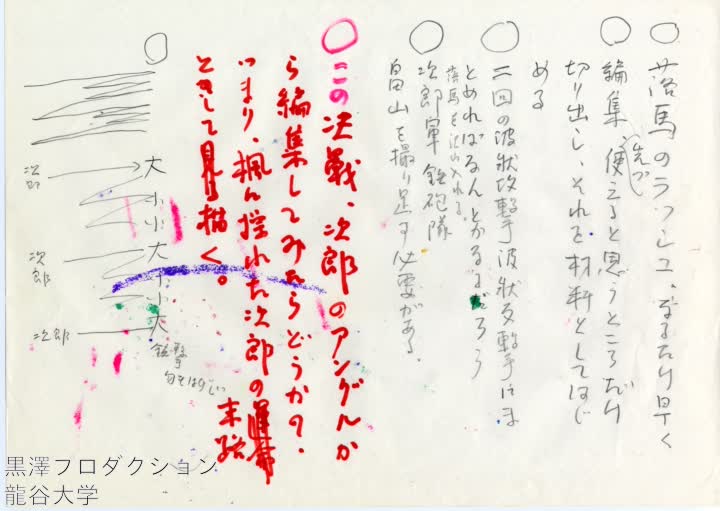 落馬のラッシュ、なるたけ早く
編集、先づ使えると思うところだけ
切り出し、それを材料としてはじ
める
二回の波状攻撃 波状反撃にま
とめればなんとかなるだろう
落馬を沢山入れる
次郎軍 鉄砲隊
畠山を撮り足す必要がある。
この決戦、次郎のアングルか
ら編集してみたらどうかの、
つまり、楓に操れた次郎の
末路
として見る描く。
次郎
大
小
小
次郎
大
小
小
次郎
大
銃撃
黒澤プロダクション
龍谷大学